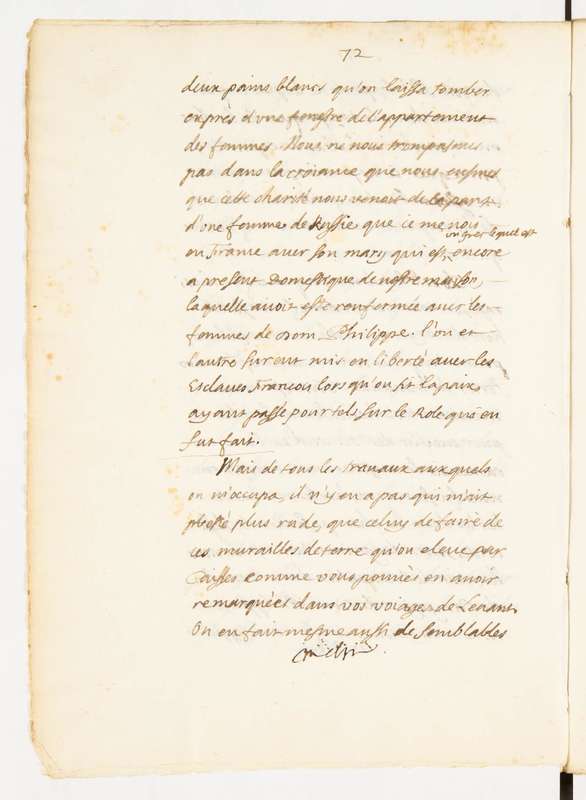 72
deux pains blancs qu'on laissa tomber
exprès d'une fenestre de l'appartement
des femmes. Nous ne nous trompasmes
pas dans la croiance que nous eusmes
que cette charité nous venoit de la part
d'une femme de Russie que ie menoi
en France avec son mary qui est, encore
a present Domestique de nostre maison,
laquelle avoit esté renfermée avec les
femmes de Dom Philippe. l'un et
l'autre furent mis en liberté avec les
Esclaves François lorsqu'on fit la paix
ayant passé pour tels sur le Role qui en
fut fait.
Mais de tous les travaux auxquels
on m'occupa, il n'y en a pas qui m'ait
plus rude, que celuy de faire de
ces murailles de terre qu'on eleve par
Caisses comme vous pouviés en avoir
remarquées dans vos voiages de Levant.
On en fait mesme aussi de semblables